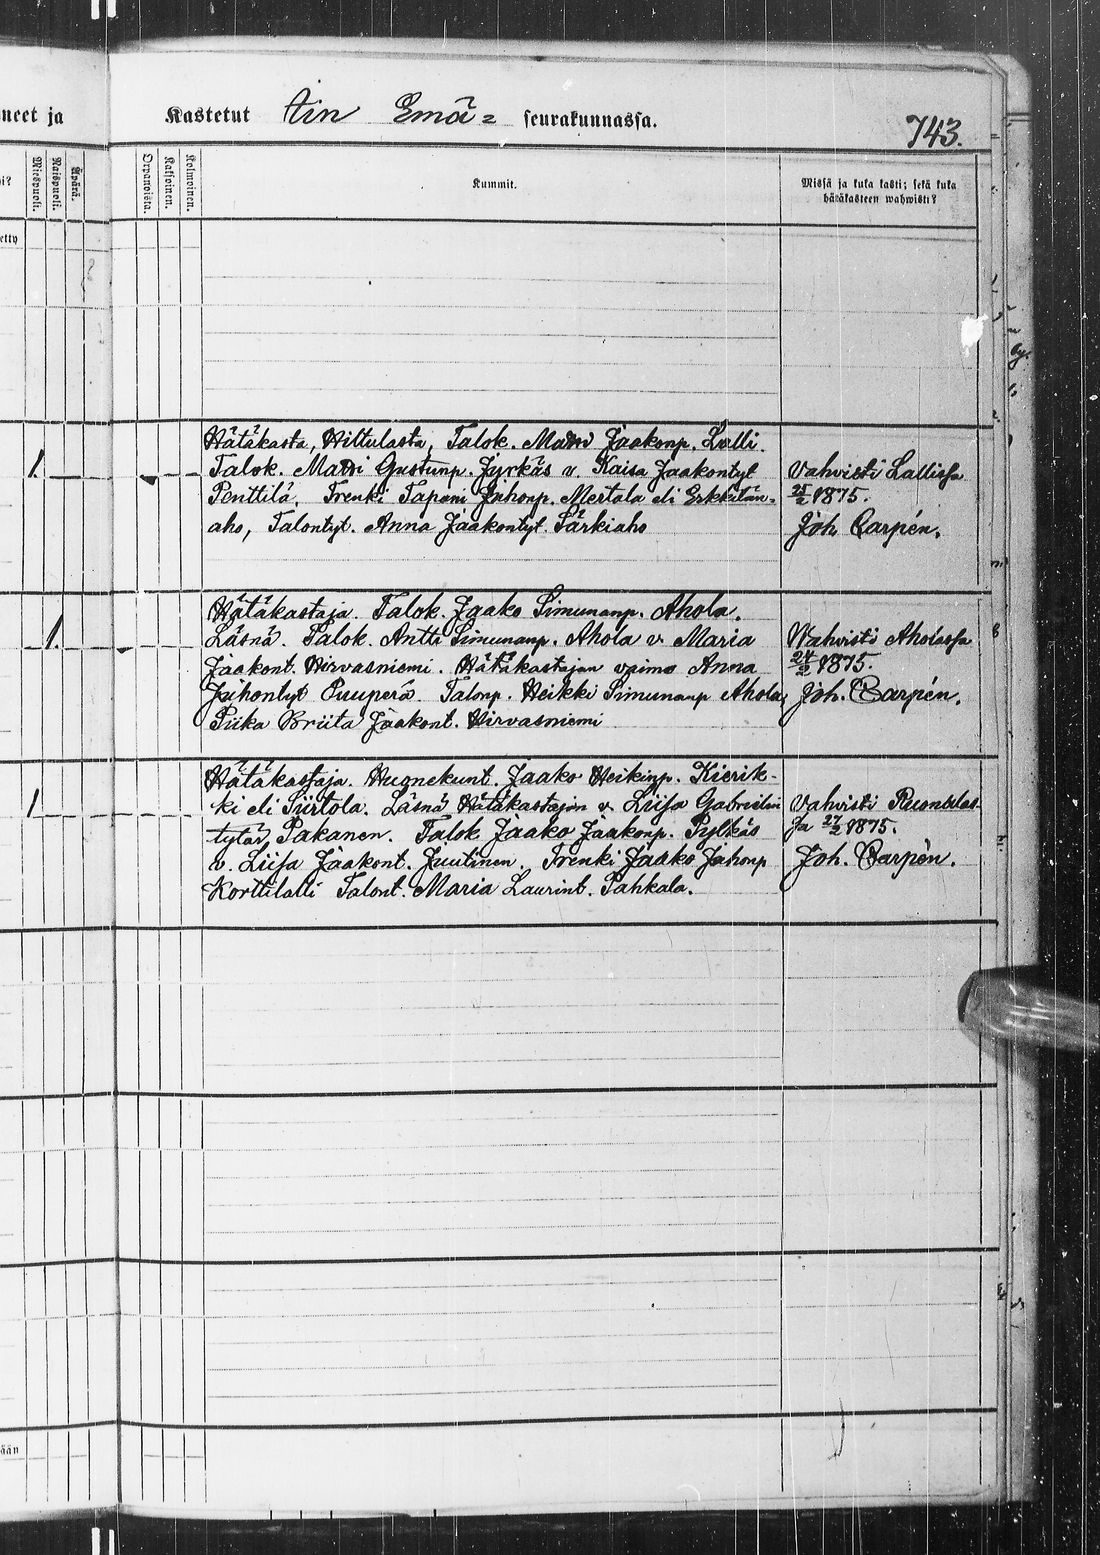 neet ja
Kastetut Iin Emä= seurakunnassa.
743.
Miespuoli.
Waispuoli.
Äpärä.
Orpanoista.
Kaksoinen.
Kolmoinen.
Kummit.
Missä ja kuka kasti; sekä kuka
hätäkasteen wahwisti?
etty
Hätäkasta, Hiltulasta, Talok. Matti Jaakonp. Lalli.
Talok. Matti Gustunp. Jyrkäs v. Kaisa Jaakontyt
Penttilä. Trenki Tapani Juhonp. Mertala eli Erkkilän=
aho, Talontyt. Anna Jaakontyt. Särkiaho
1.
Vahvisti Lallissa
25/2 1875.
Joh. Carpén.
Hätäkastaja. Talok. Jaako Simunanp. Ahola.
Läsnä. Talok. Antti Simunanp. Ahola v. Maria
Jaakont. Hirvasniemi. Hätäkastajan vaimo Anna
Juhontyt Puuperä. Talonp. Heikki Simunanp Ahola,
Piika Briita Jaakont. Hirvasniemi
1.
Wahvisti Aholassa
24/2 1875.
Joh. Carpén.
Hätäkastaja. Huonekunt. Jaako Heikinp. Kierik-
ki eli Siirtola. Läsnä Hätäkastajan v. Liisa Gabrielin
tytär Pakanen. Talok Jaako Jaakonp. Pylkäs
v. Liisa Jaakont. Juutinen. Trenki Jaako Juhonp
Korttilalli Talont. Maria Laurint. Pahkala.
1
Vahvisti Ruonalas
sa 27/2 1875.
Joh. Carpén.
ään